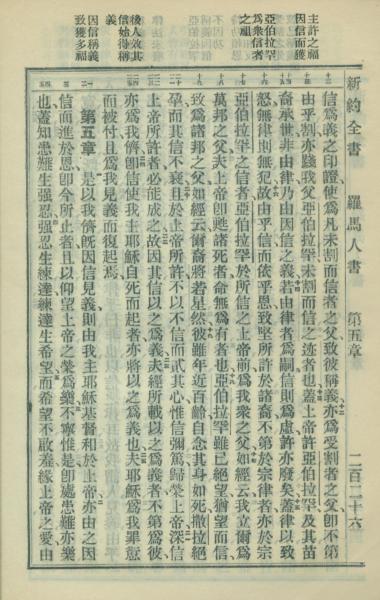 新約全書 羅馬人書 第五章 二百二十六
主許之福
因信而獲
亞伯拉罕
爲衆信者
之祖
後人效其
信始得稱
義
因信稱義
致獲多福
信爲義之印證使爲凡未割而信者之父致彼稱義亦爲受割者之父卽不第
由乎割亦踐我父亞伯拉罕未割而信之迹者也蓋上帝許亞伯拉罕及其苗
裔承世非由律乃由因信之義若由律者爲嗣信則爲虛許亦廢矣蓋律以致
怒無律則無犯故由乎信而依乎恩致堅所許於諸裔不第於宗律者亦於宗
亞伯拉罕之信者亞伯拉罕於所信之上帝前爲我衆之父如經云我立爾爲
萬邦之父夫上帝卽甦諸死者命無爲有者也亞伯拉罕雖已絕望猶望而信
致爲諸邦之父如經云爾裔將若是然彼雖年近百齡自念其身如死撒拉絕
孕而其信不衰且於上帝所許不以不信而貳其心惟信彌篤歸榮上帝深信
上帝所許者必能成之故因其信以之爲義夫經所載以之爲義者不第爲彼
亦爲我儕卽信使我主耶穌自死而起者亦將以之爲義也夫耶穌爲我罪愆
而被付且爲我見義而復起焉
第五章 是以我儕旣因信見義則由我主耶穌基督和於上帝亦由之因
信而進於恩卽今所止者且以仰望上帝之榮爲樂不寧惟是卽處患難亦樂
也蓋知患難生强忍强忍生練達練達生希望而希望不啟羞緣上帝之愛由